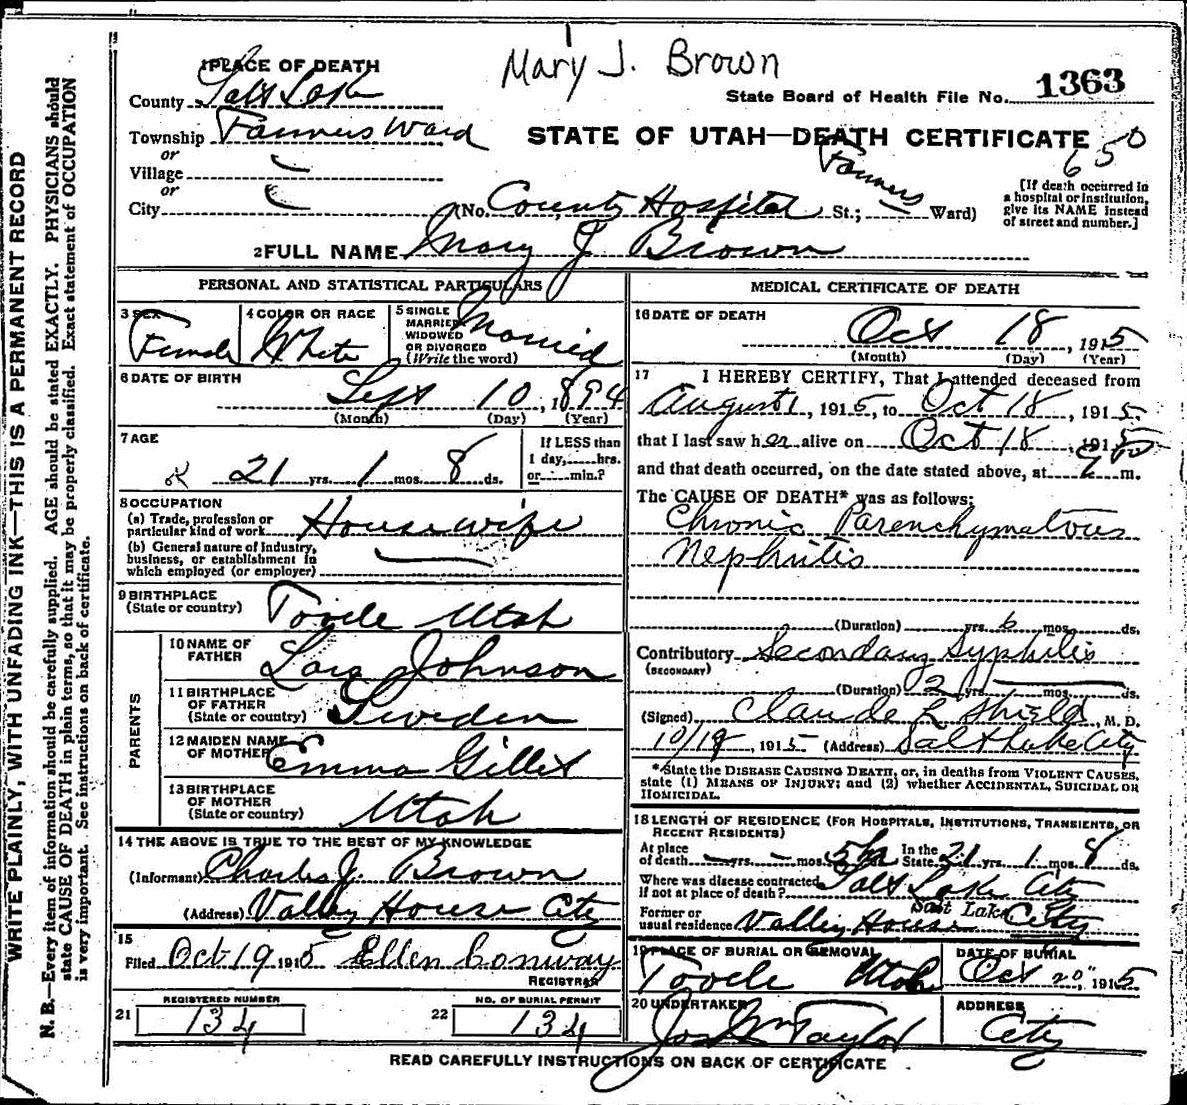 Mary J. Brown
1 PLACE OF DEATH
County Salt Lake
State Board of Health File No. 1363
Township Farmers Ward
or
STATE OF UTAH—DEATH CERTIFICATE
650
Village
or
City
(No. County Hospital St.; Farmers Ward)
[If death occurred in
a hospital or institution,
give its NAME instead
of street and number.]
2 FULL NAME Mary J Brown
PERSONAL AND STATISTICAL PARTICULARS
3 SEX Female
4 COLOR OR RACE White
5 SINGLE
MARRIED
WIDOWED
OR DIVORCED
(Write the word) Married
6 DATE OF BIRTH
Sept 10, 1894
(Month) (Day) (Year)
7 AGE
21 yrs. 1 mos. 8 ds.
If LESS than
1 day,......hrs.
or......min.?
8 OCCUPATION
(a) Trade, profession or
particular kind of work Housewife
(b) General nature of industry,
business, or establishment in
which employed (or employer)
9 BIRTHPLACE
(State or country) Tooele Utah
PARENTS
10 NAME OF
FATHER Johnson
11 BIRTHPLACE
OF FATHER
(State or country) Sweden
12 MAIDEN NAME
OF MOTHER Emma
13 BIRTHPLACE
OF MOTHER
(State or country) Utah
14 THE ABOVE IS TRUE TO THE BEST OF MY KNOWLEDGE
(Informant) Charles J. Brown
(Address) Valley House City
15
Filed Oct 19 1915 Ellen Conway
REGISTRAR
21 REGISTERED NUMBER 134
22 NO. OF BURIAL PERMIT 134
MEDICAL CERTIFICATE OF DEATH
16 DATE OF DEATH
Oct 18, 1915
(Month) (Day) (Year)
17 I HEREBY CERTIFY, That I attended deceased from
August 1, 1915, to Oct 18, 1915
that I last saw her alive on Oct 18, 1915
and that death occurred, on the date stated above, at m.
The CAUSE OF DEATH* was as follows:
Chronic Parenchymatous
Nephritis
(Duration) yrs. 6 mos. ds.
Contributory Secondary Syphilis
(SECONDARY)
(Duration) 2 yrs. mos. ds.
(Signed) Claude L Shield, M. D.
10/18, 1915 (Address) Salt Lake City
*State the DISEASE CAUSING DEATH, or, in deaths from VIOLENT CAUSES,
state (1) MEANS OF INJURY; and (2) whether ACCIDENTAL, SUICIDAL OR
HOMICIDAL.
18 LENGTH OF RESIDENCE (FOR HOSPITALS, INSTITUTIONS, TRANSIENTS, OR
RECENT RESIDENTS)
At place
of death yrs. mos. ds.
In the
State 21 yrs. 1 mos. 8 ds.
Where was disease contracted,
if not at place of death? Salt Lake City
Former or
usual residence Valley House Salt Lake City
19 PLACE OF BURIAL OR REMOVAL
Tooele Utah
DATE OF BURIAL
Oct 20", 1915
20 UNDERTAKER
Taylor
ADDRESS
City
READ CAREFULLY INSTRUCTIONS ON BACK OF CERTIFICATE
WRITE PLAINLY, WITH UNFADING INK—THIS IS A PERMANENT RECORD
N. B.—Every item of information should be carefully supplied. AGE should be stated EXACTLY. PHYSICIANS should
state CAUSE OF DEATH in plain terms, so that it may be properly classified. Exact statement of OCCUPATION
is very important. See instructions on back of certificate.